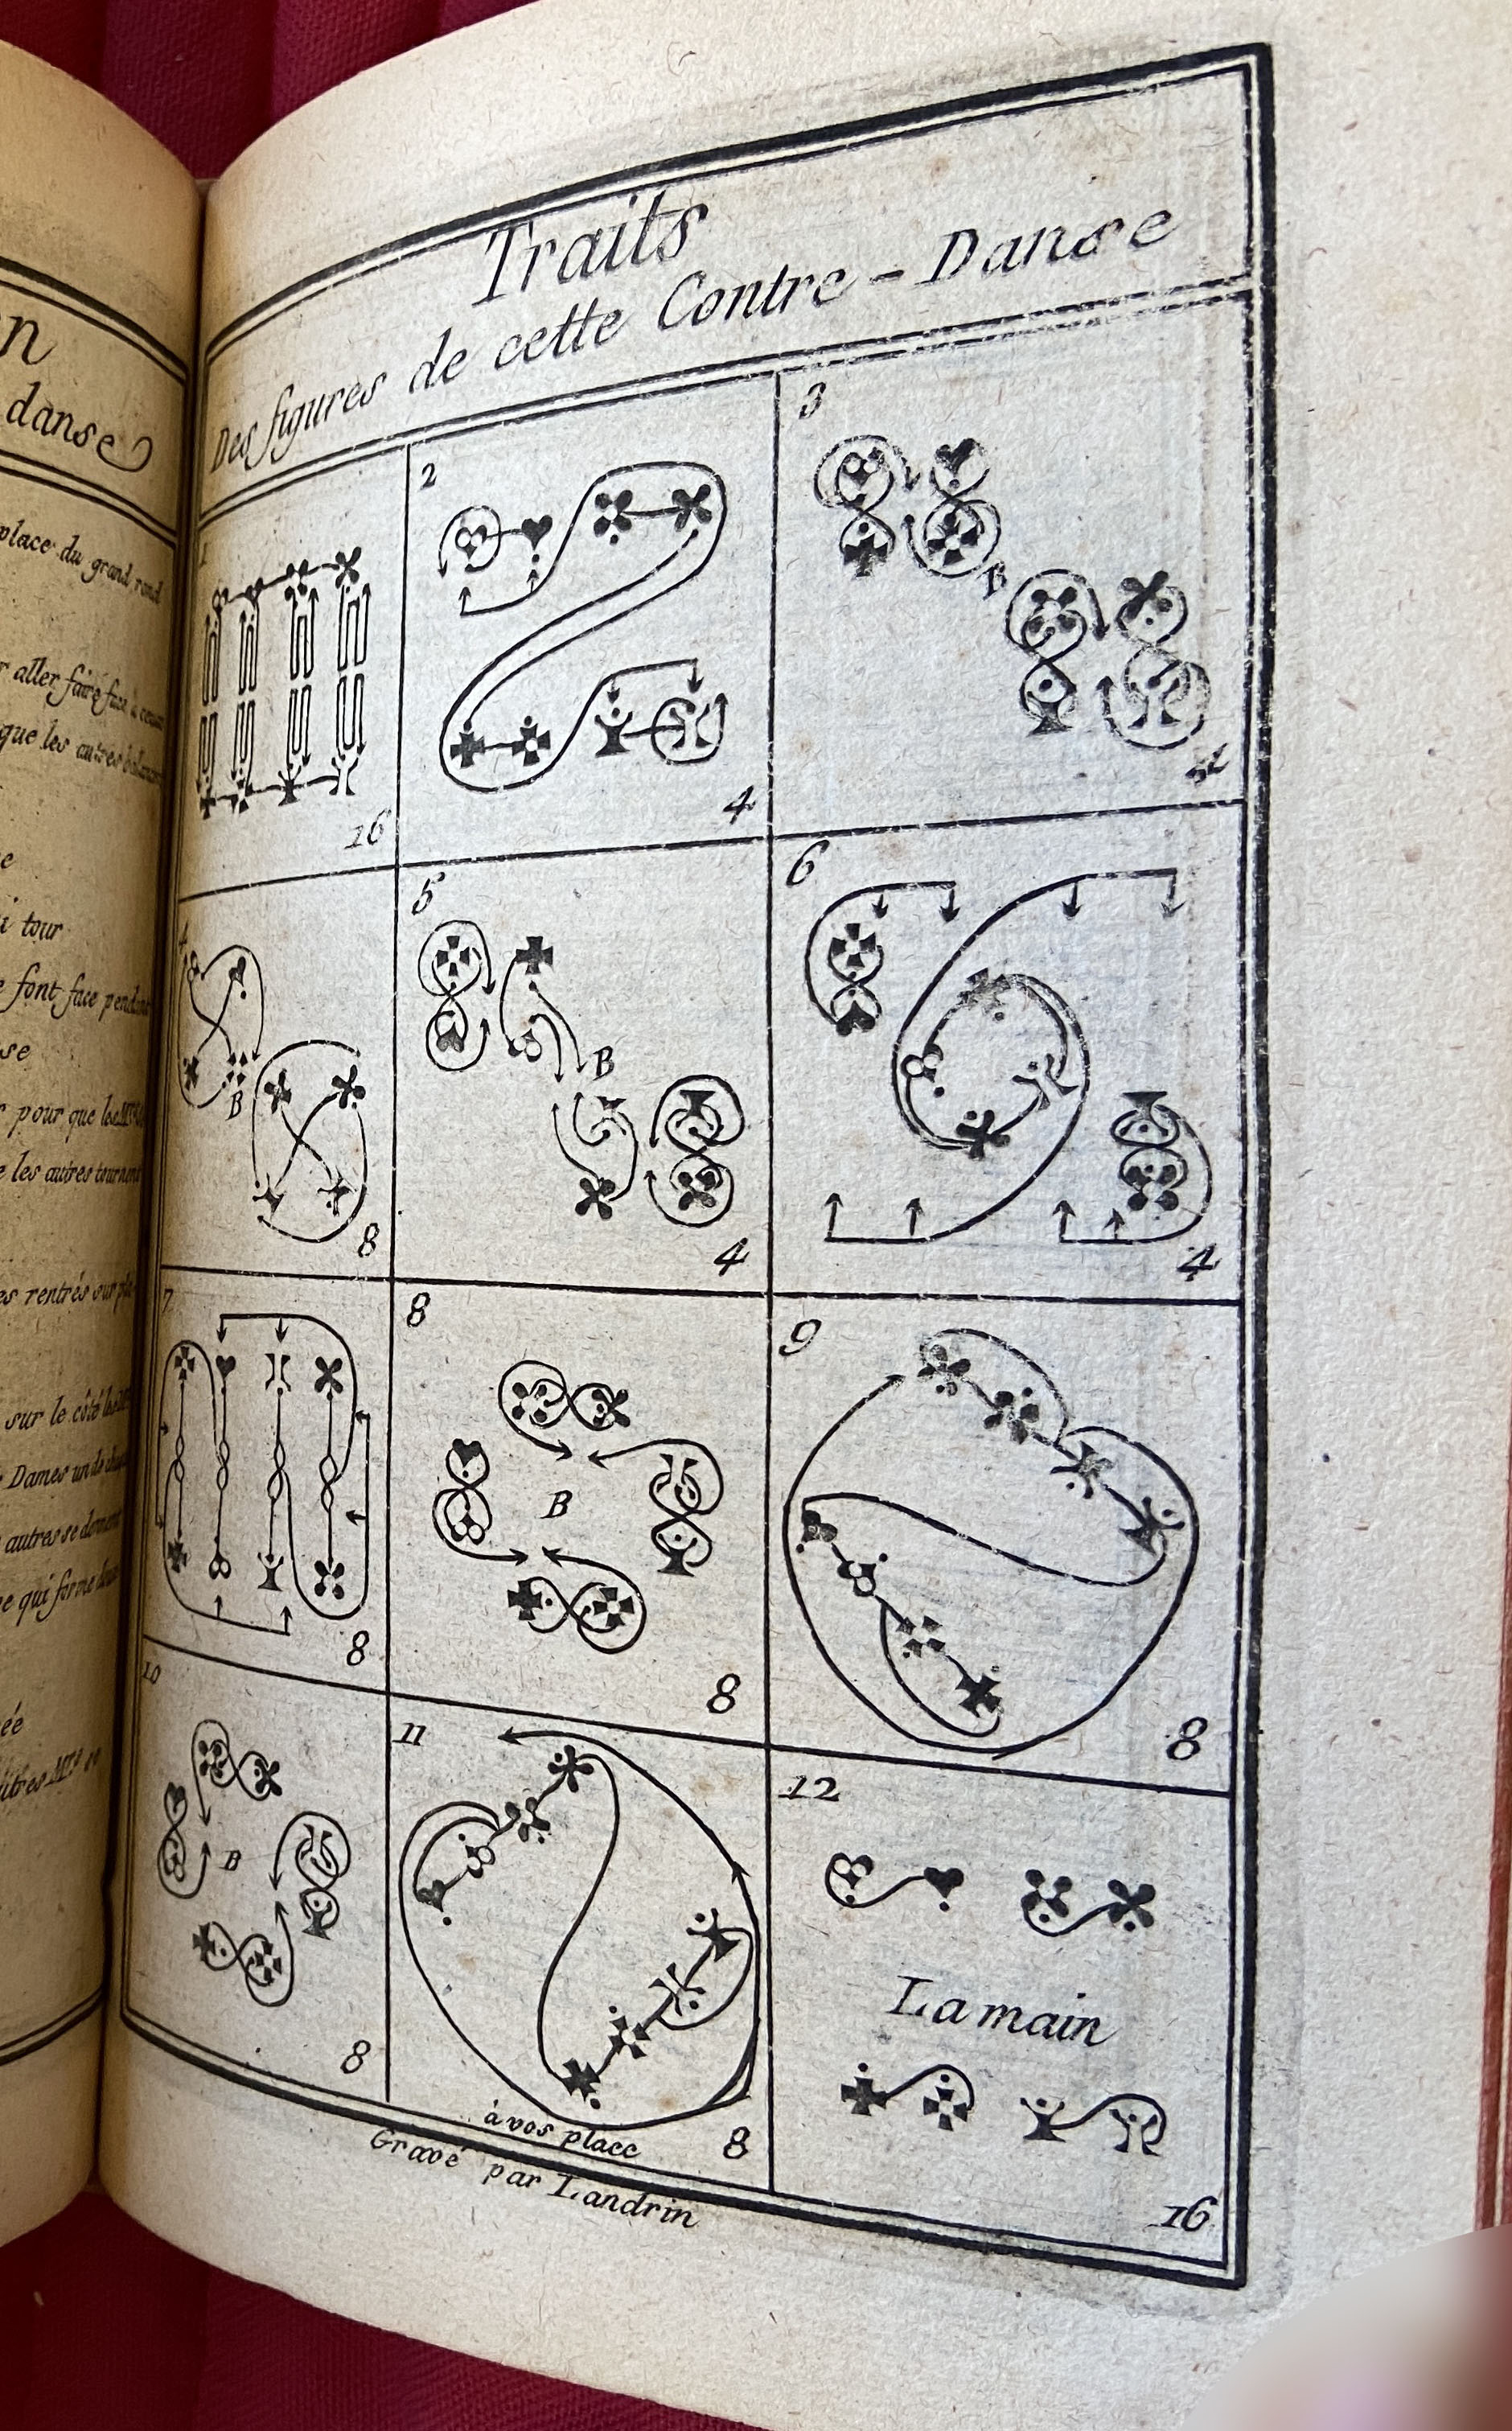 n
danse
place du grand rond
aller faire face à
que les autres
e
tour
font face pendant
se
pour que les
e les autres tournent
es rentrés sur
sur le côté
Dames un de
autres se donnent
e qui forme
ée
Traits
Des figures de cette Contre-Danse
1
16
2
4
3
B
4
4
B
8
5
B
4
6
4
7
8
8
B
8
9
8
10
B
8
11
à vos place
8
12
La main
16
Gravé par Landrin